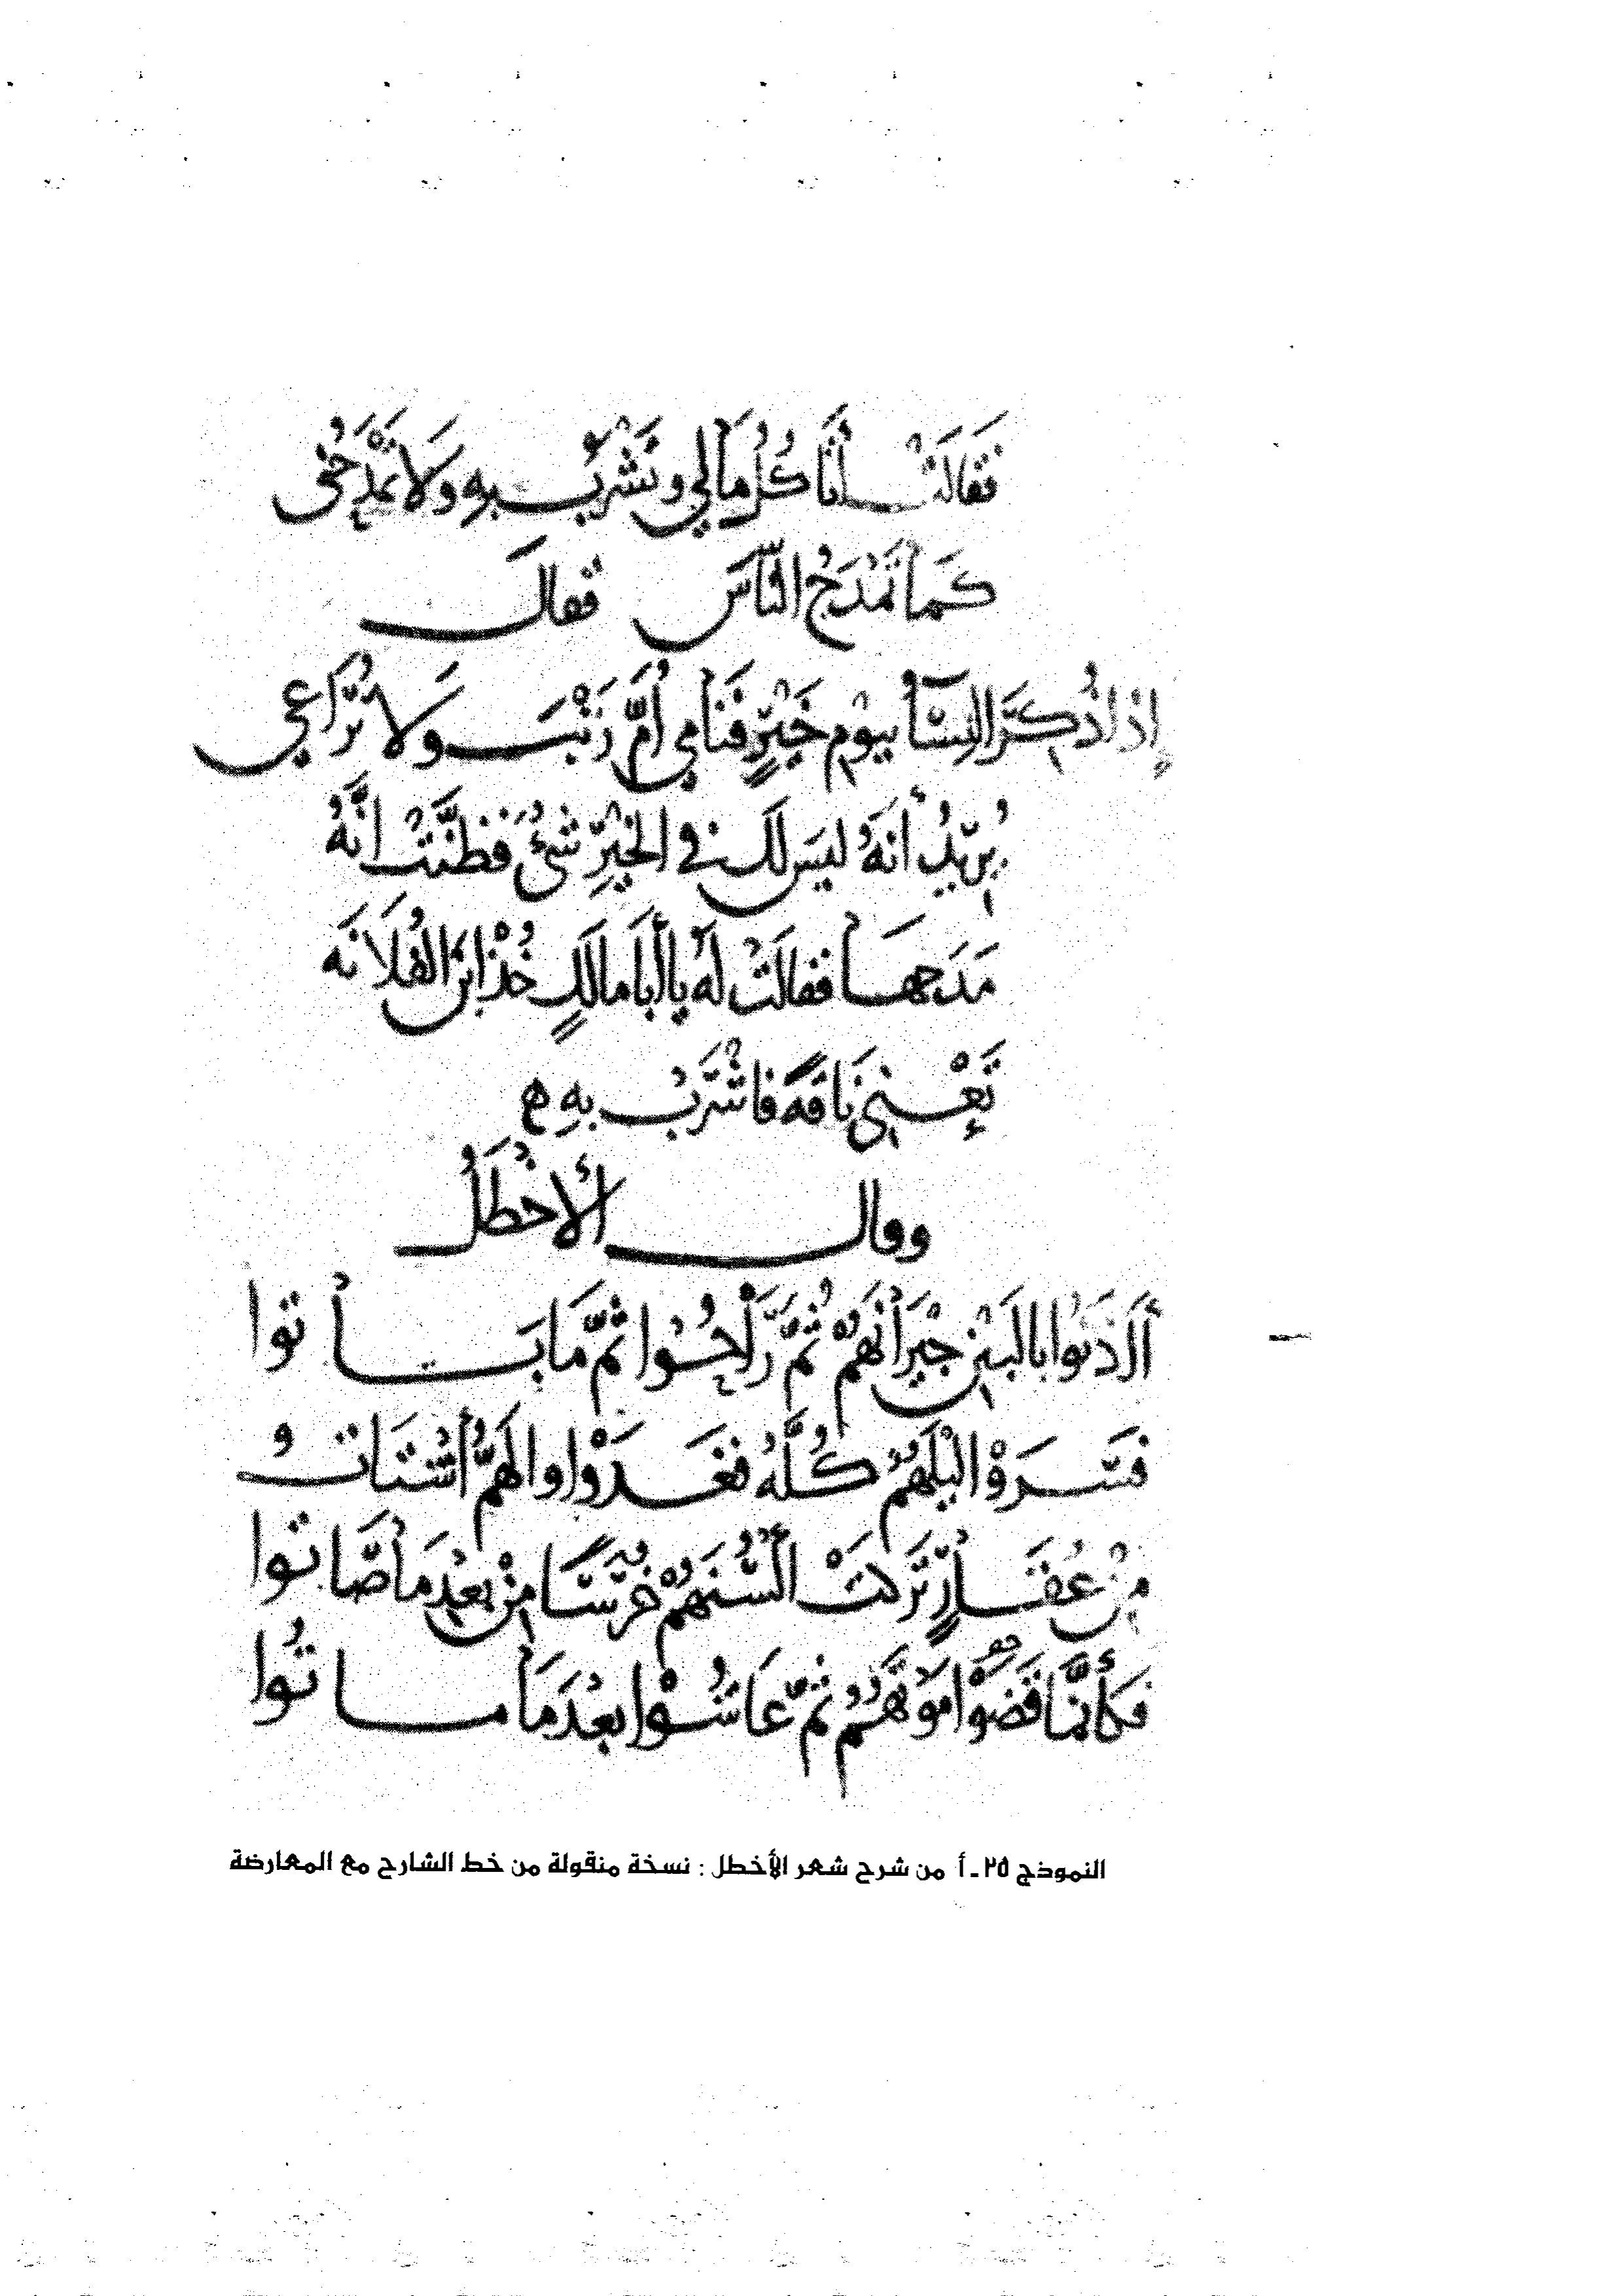 فَقَالَتْ أَنَا كُلُّ مَالِي وَتَشْرَبُ بِهِ وَلَا تَمْدَحُنِي
كَمَا تَمْدَحُ النَّاسَ فَقَالَ
إِذَا ذُكِرَ النِّسَآءُ بِيَوْمِ خَيْرٍ فَنَامِي أُمَّ زَنْبَ وَلَا تُرَاعِي
يُرِيدُ أَنَّهُ لَيْسَ لَكِ فِي الْخَيْرِ شَيْءٌ فَظَنَّتْ أَنَّهُ
مَدَحَهَا فَقَالَتْ لَهُ يَا أَبَا مَالِكٍ خُذْ ابْنَ الْفُلَانَه
تَعْنِي نَاقَةً فَاشْرَبْ بِهِ ه
وقال الأَخْطَلُ
أَلَا ذَنُوا بِالْبَيْنِ جِيْرَانُهُمْ ثُمَّ رَاحُوا ثُمَّ مَا بَاتُوا
فَسَرَوْا لَيْلَهُمُ كُلَّهُ فَغَدَوْا وَالْهَمُّ أَشْتَاتُ
مِنْ عُقَارٍ تَرَكَتْ أَلْسُنَهُمْ خُرْسًا مِنْ بَعْدِ مَا صَاتُوا
فَكَأَنَّمَا قَضَوْا مَوْتَهُمُ ثُمَّ عَاشُوْا بَعْدَ مَا مَاتُوا
النموذج ٢٥ ـ أ من شرح شعر الأخطل : نسخة منقولة من خط الشارح مع المعارضة